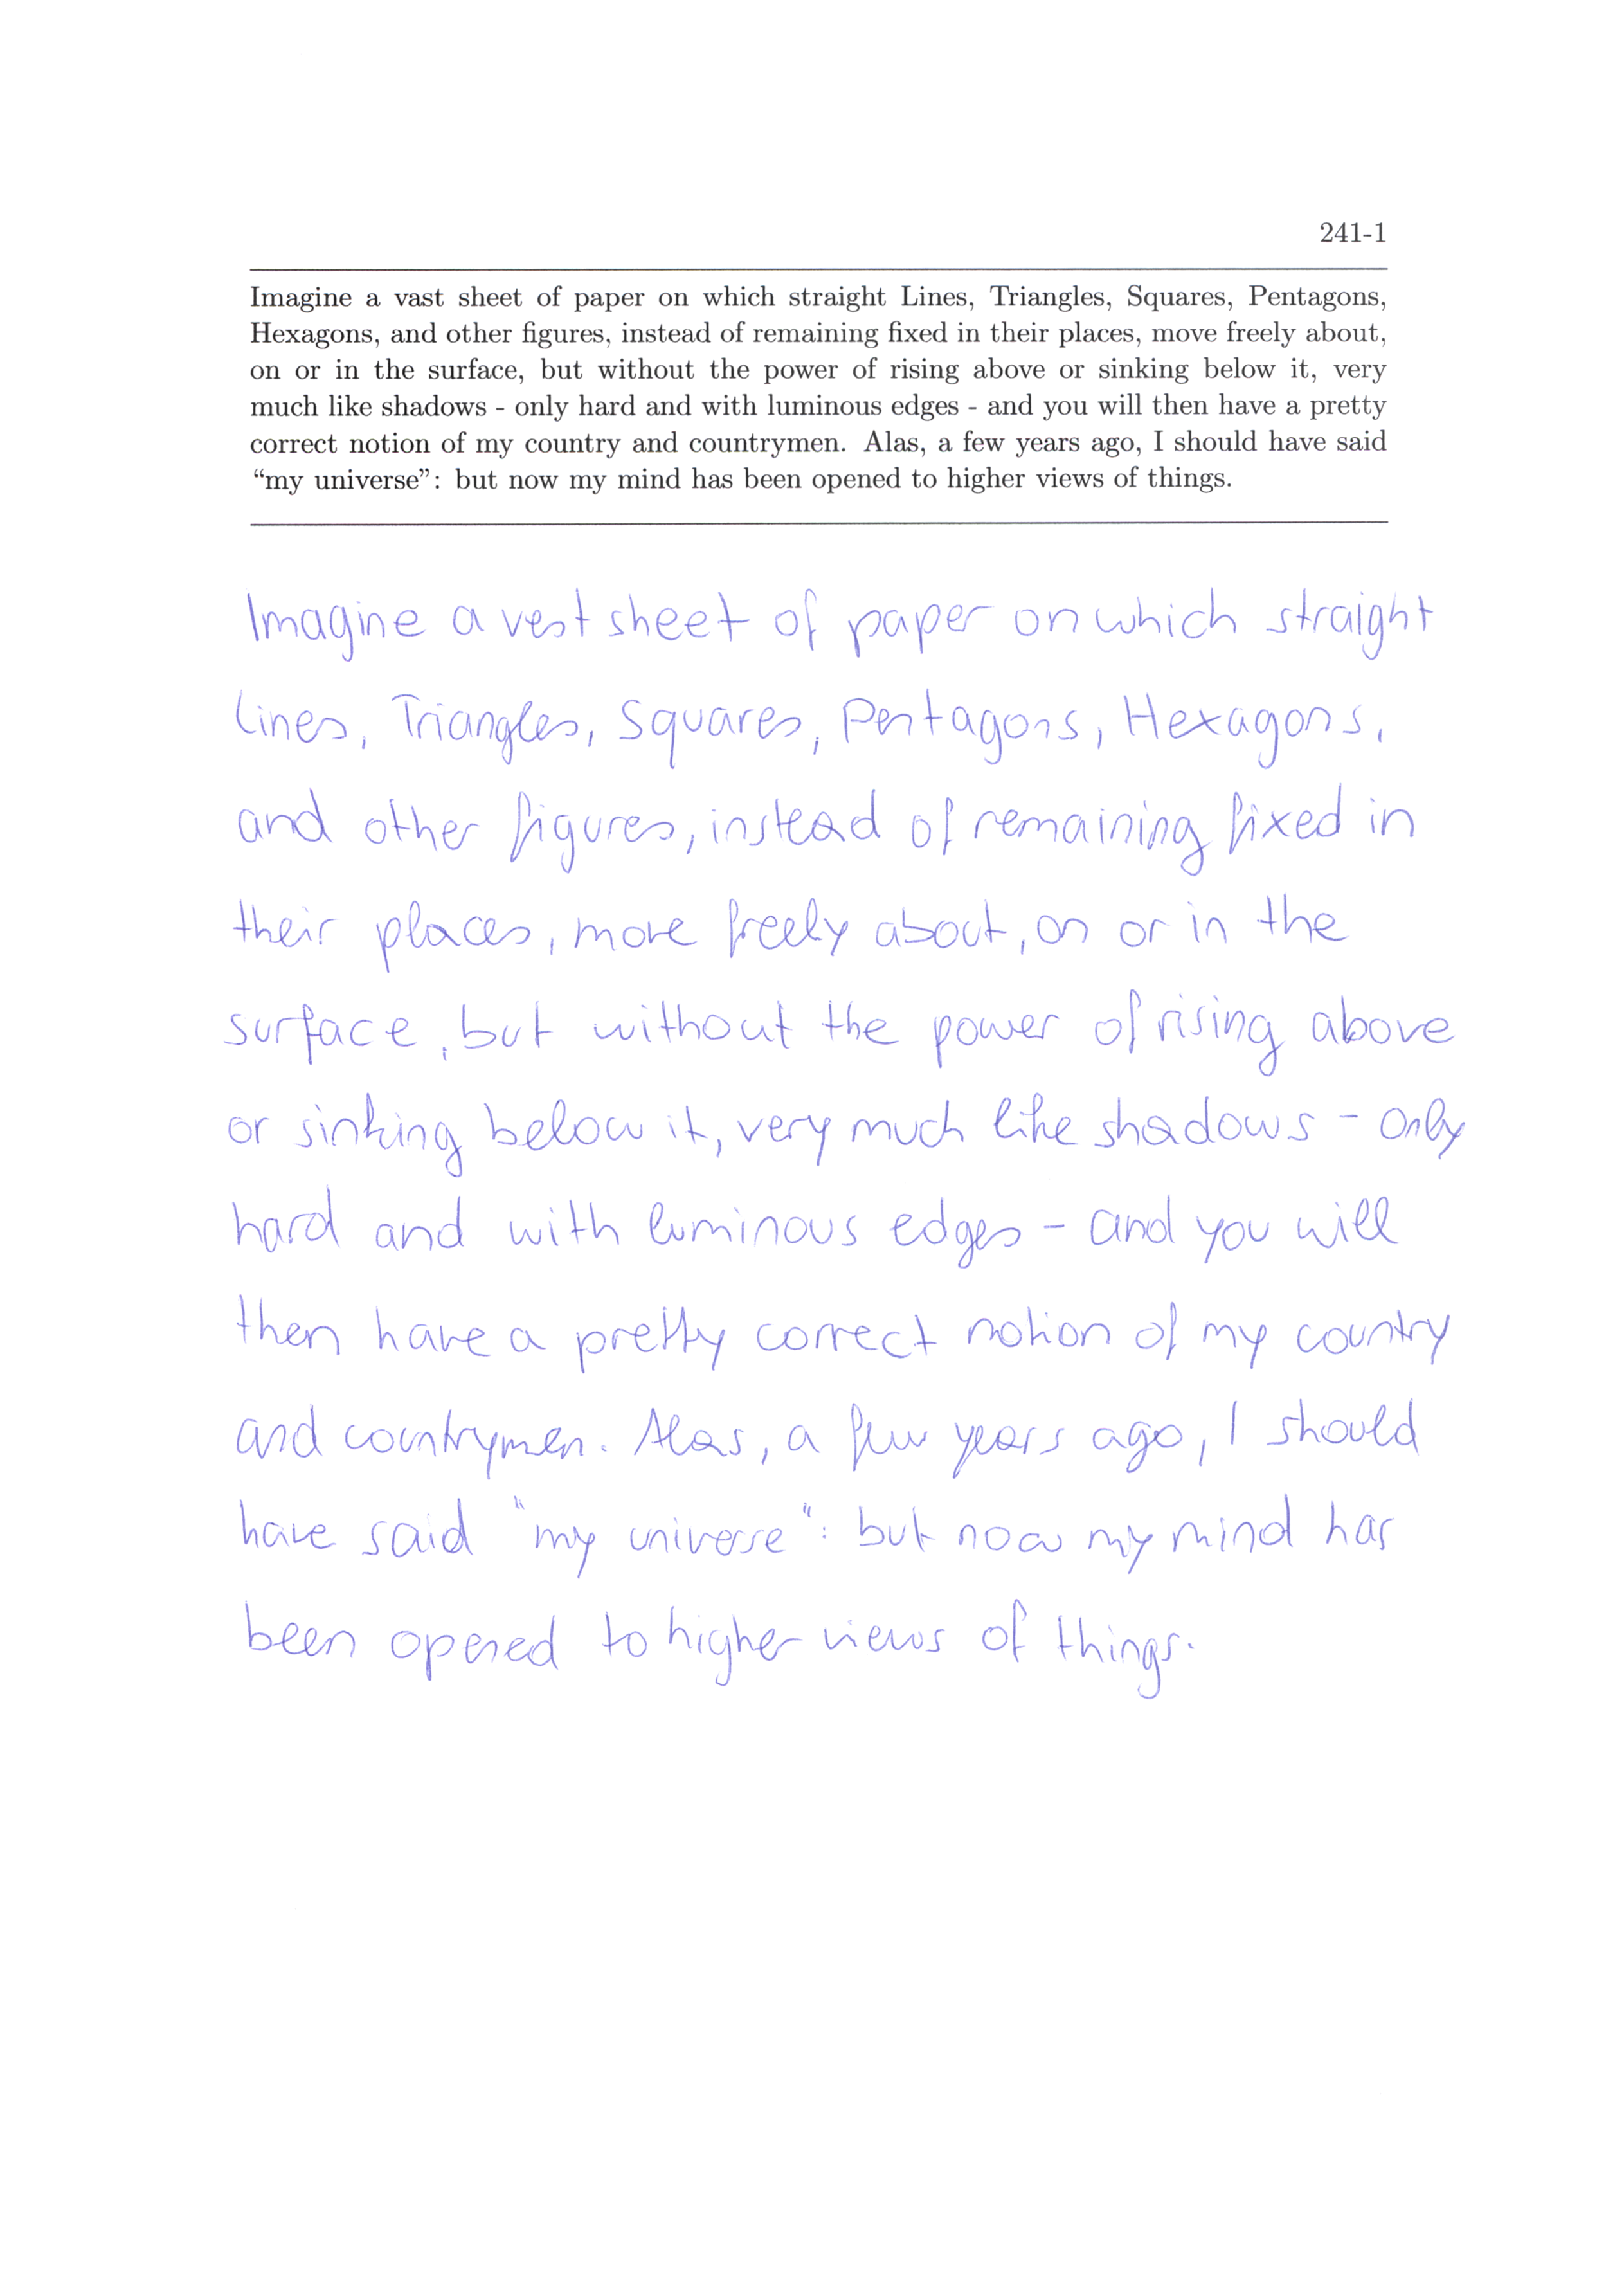 241-1
Imagine a vast sheet of paper on which straight Lines, Triangles, Squares, Pentagons,
Hexagons, and other figures, instead of remaining fixed in their places, move freely about,
on or in the surface, but without the power of rising above or sinking below it, very
much like shadows - only hard and with luminous edges - and you will then have a pretty
correct notion of my country and countrymen. Alas, a few years ago, I should have said
“my universe”: but now my mind has been opened to higher views of things.
Imagine a vast sheet of paper on which straight
Lines, Triangles, Squares, Pentagons, Hexagons,
and other figures, instead of remaining fixed in
their places, move freely about, on or in the
surface, but without the power of rising above
or sinking below it, very much like shadows - only
hard and with luminous edges - and you will
then have a pretty correct notion of my country
and countrymen. Alas, a few years ago, I should
have said "my universe": but now my mind has
been opened to higher views of things.